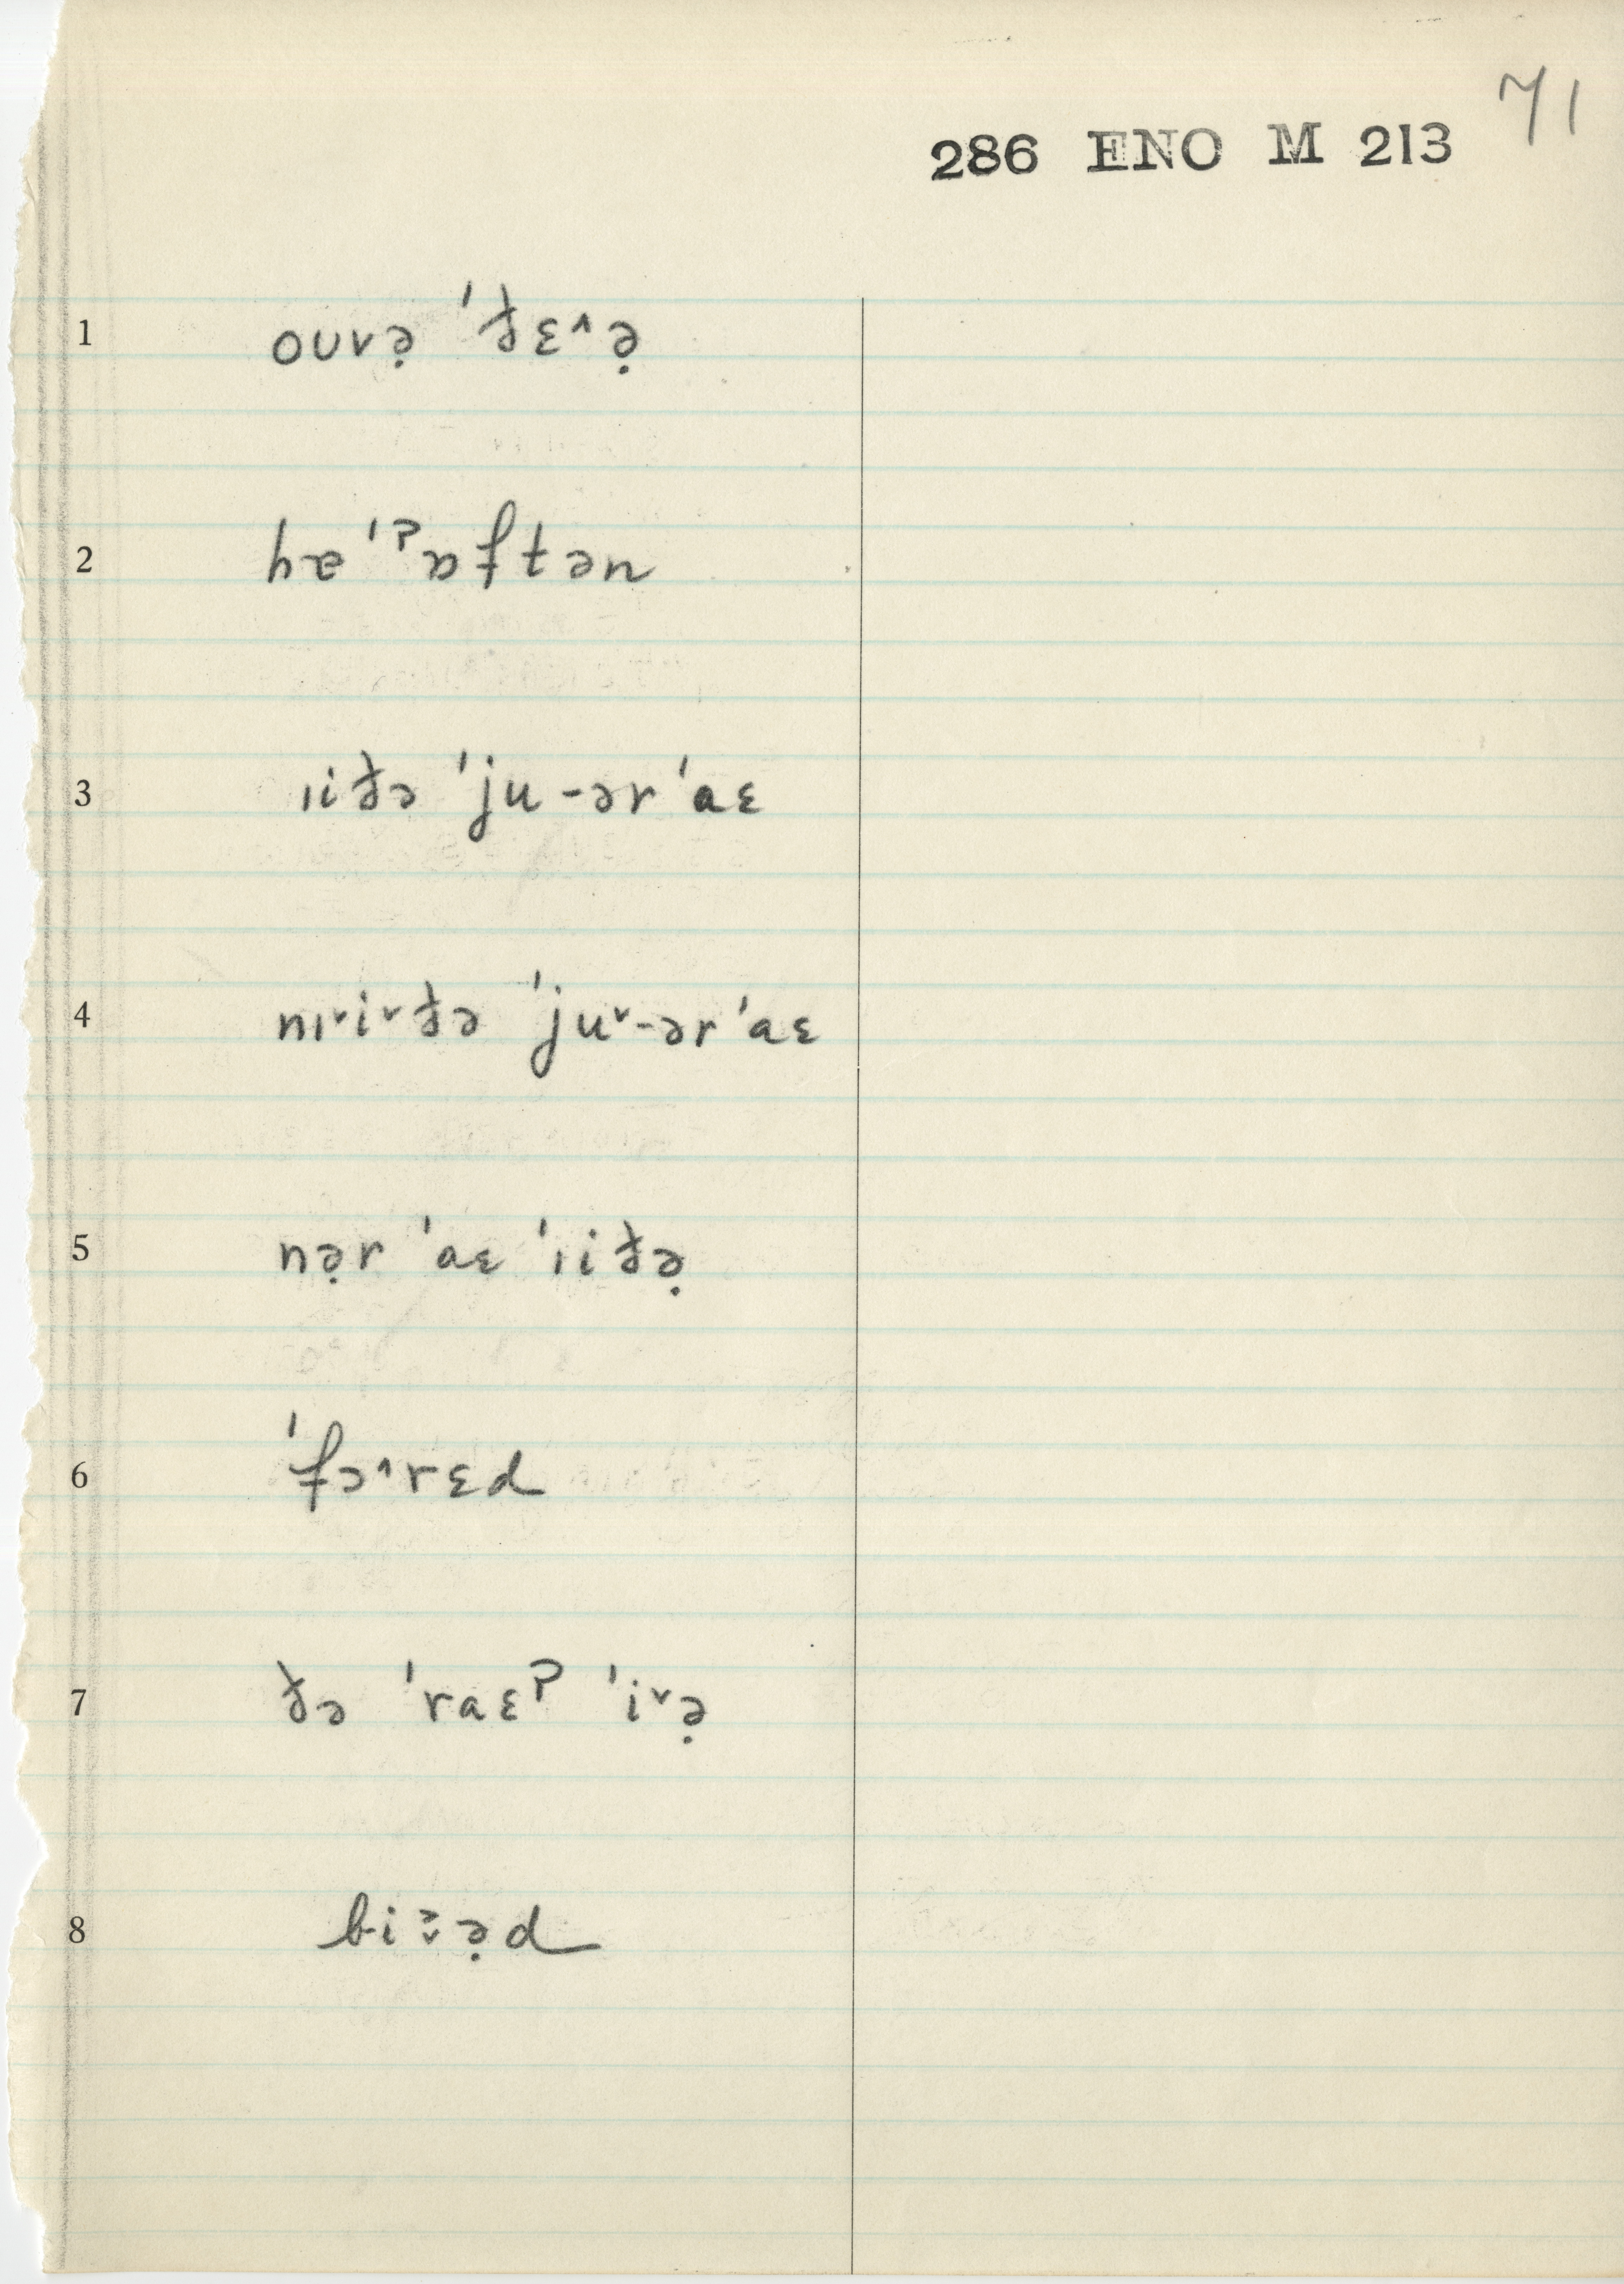 71
286 ENO M 213
1 ouvə̣ ˈðɛ^ə̣
2 hæ ˈˀɒftən
3 ɪiðə ˈju-ərˈaɛ
4 nɪ˅i˅ðə ˈju˅-ərˈaɛ
5 nə̣r ˈaɛ ˈɪiðə̣
6 ˈfɔ^rɛd
7 ðə ˈraɛˀ ˈi˅ə̣
8 bi ə̣d